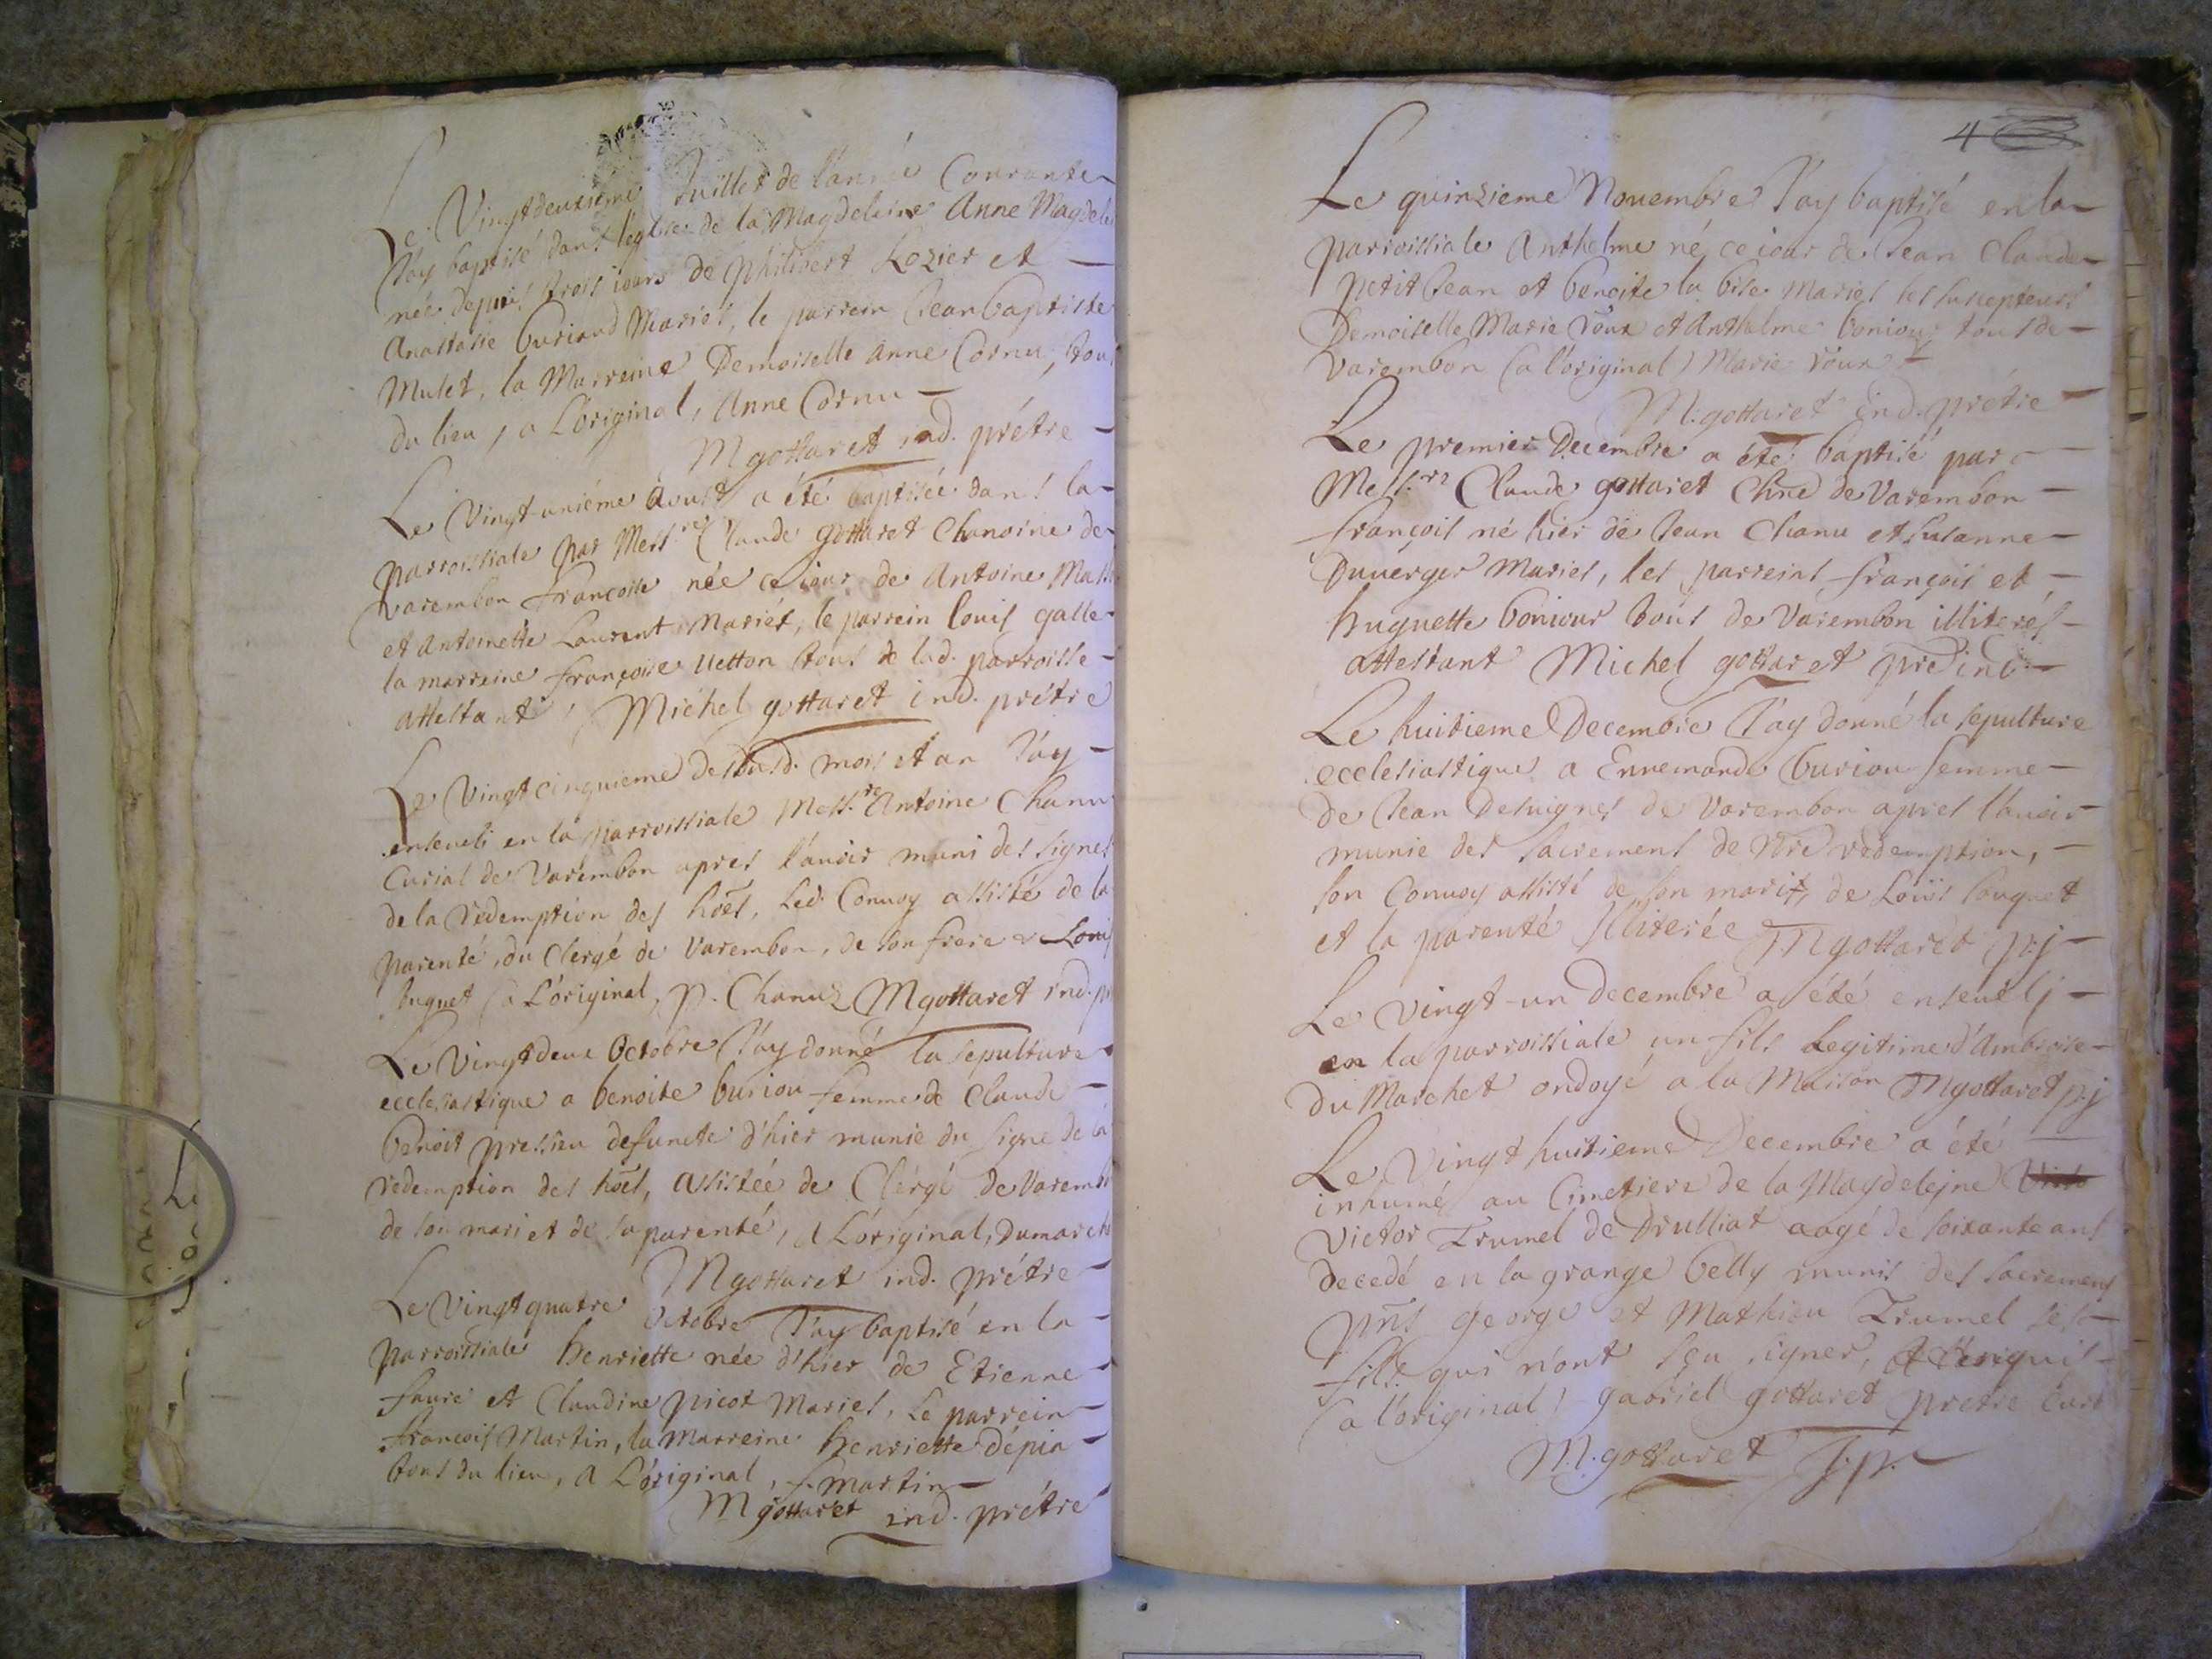 Le Vingtdeuxième Juillet de l'année Courante
J'ay baptisé dans l'église de la Magdeleine Anne Magdele
née depuis trois jours de philibert Lozier et
Anastasie buriand Mariés, le parrein Jean baptiste
Mulet, la Marreine Demoiselle Anne Cornu, tous
du lieu, a L'original, Anne Cornu
Mgottaret ind. prétre
Le Vingt-uniéme Aoust a été baptisée dans la
parroissiale par Mess.re Claude gottaret Chanoine de
varembon francoise née ce jour de Antoine Mass
et Antoinette Laurent Mariés, le parrein louis galle
la marreine françoise Uetton tous de lad. parroisse
attestant, Michel gottaret ind. prétre
Le Vingt cinquieme des susd. mois et an J'ay
enseveli en la parroissiale Mess.re Antoine Chanu
Curial de Varembon apres l'avoir muni des signes
de la redemption des hoēs, led. Convoy assisté de la
parenté, du Clergé de Varembon, de son frere & Louis
Juguet (a L'original, p. Chanuz Mgottaret ind. p
Le Vingtdeux Octobre J'ay donné la sepulture
ecclesiastique a benoite buriou femme de Claude
benoit pressieu defuncte d'hier munie du signe de la
redemption des hoēs, assistée de Clergé de Varemb
de son mari et de sa parenté, a L'original, Dumarch
Mgottaret ind. prétre
Le Vingtquatre Octobre J'ay baptisé en la
parroissiale henriette née d'hier de Etienne
faure et Claudine picot Mariés, Le parrein
françois Martin, la Marreine henriette dépia
tous du lieu, a L'original, f. martin
Mgottaret ind. prétre
4
Le quinzieme Novembre J'ay baptisé en la
parroissiale Anthelme né ce jour de Jean Claude
petit Jean et benoite la bise Mariés les suscepteurs
Demoiselle Marie roux et Anthelme bonjour tous de
varembon (a l'original) Marie roux
M. gottaret ind. prétre
Le premier Decembre a été baptisé par
Mess.re Claude gottaret Chne de Varembon
françois né hier de Jean Chanu et Susanne
Duverger Mariés, les parreins françois et
huguette bonjour tous de Varembon illiterés
attestant Michel gottaret pre ind.
Le huitieme Decembre J'ay donné la sepulture
ecclesiastique a Ennemonde buriou femme
de Jean Desvignes de Varembon apres l'avoir
munie des sacremens de Nre redemption,
son Convoy assisté de son mari, de Loüis Juguet
et la parenté Illiterée Mgottaret p.j
Le Vingt-un decembre a été ensevelj
en la parroissiale un fils Legitime d'Ambroise
du Marchet ondoyé a la Maison Mgottaret p.j
Le Vingt huitieme Decembre a été
inhumé au Cimetiere de la Magdelejne
Victor Trumel de Drulliat aagé de soixante ans
Decedé en la grange belly munis des sacremens
pñs george et Mathieu Trumel ses
fils qui n'ont sçu signer, et requis
(a l'original) gabriel gottaret pretre Curé
M. gottaret J.p.